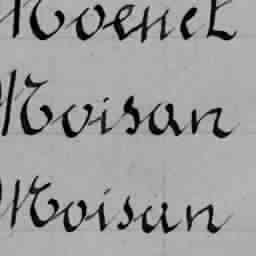 Moenck
Moisan
Moisan